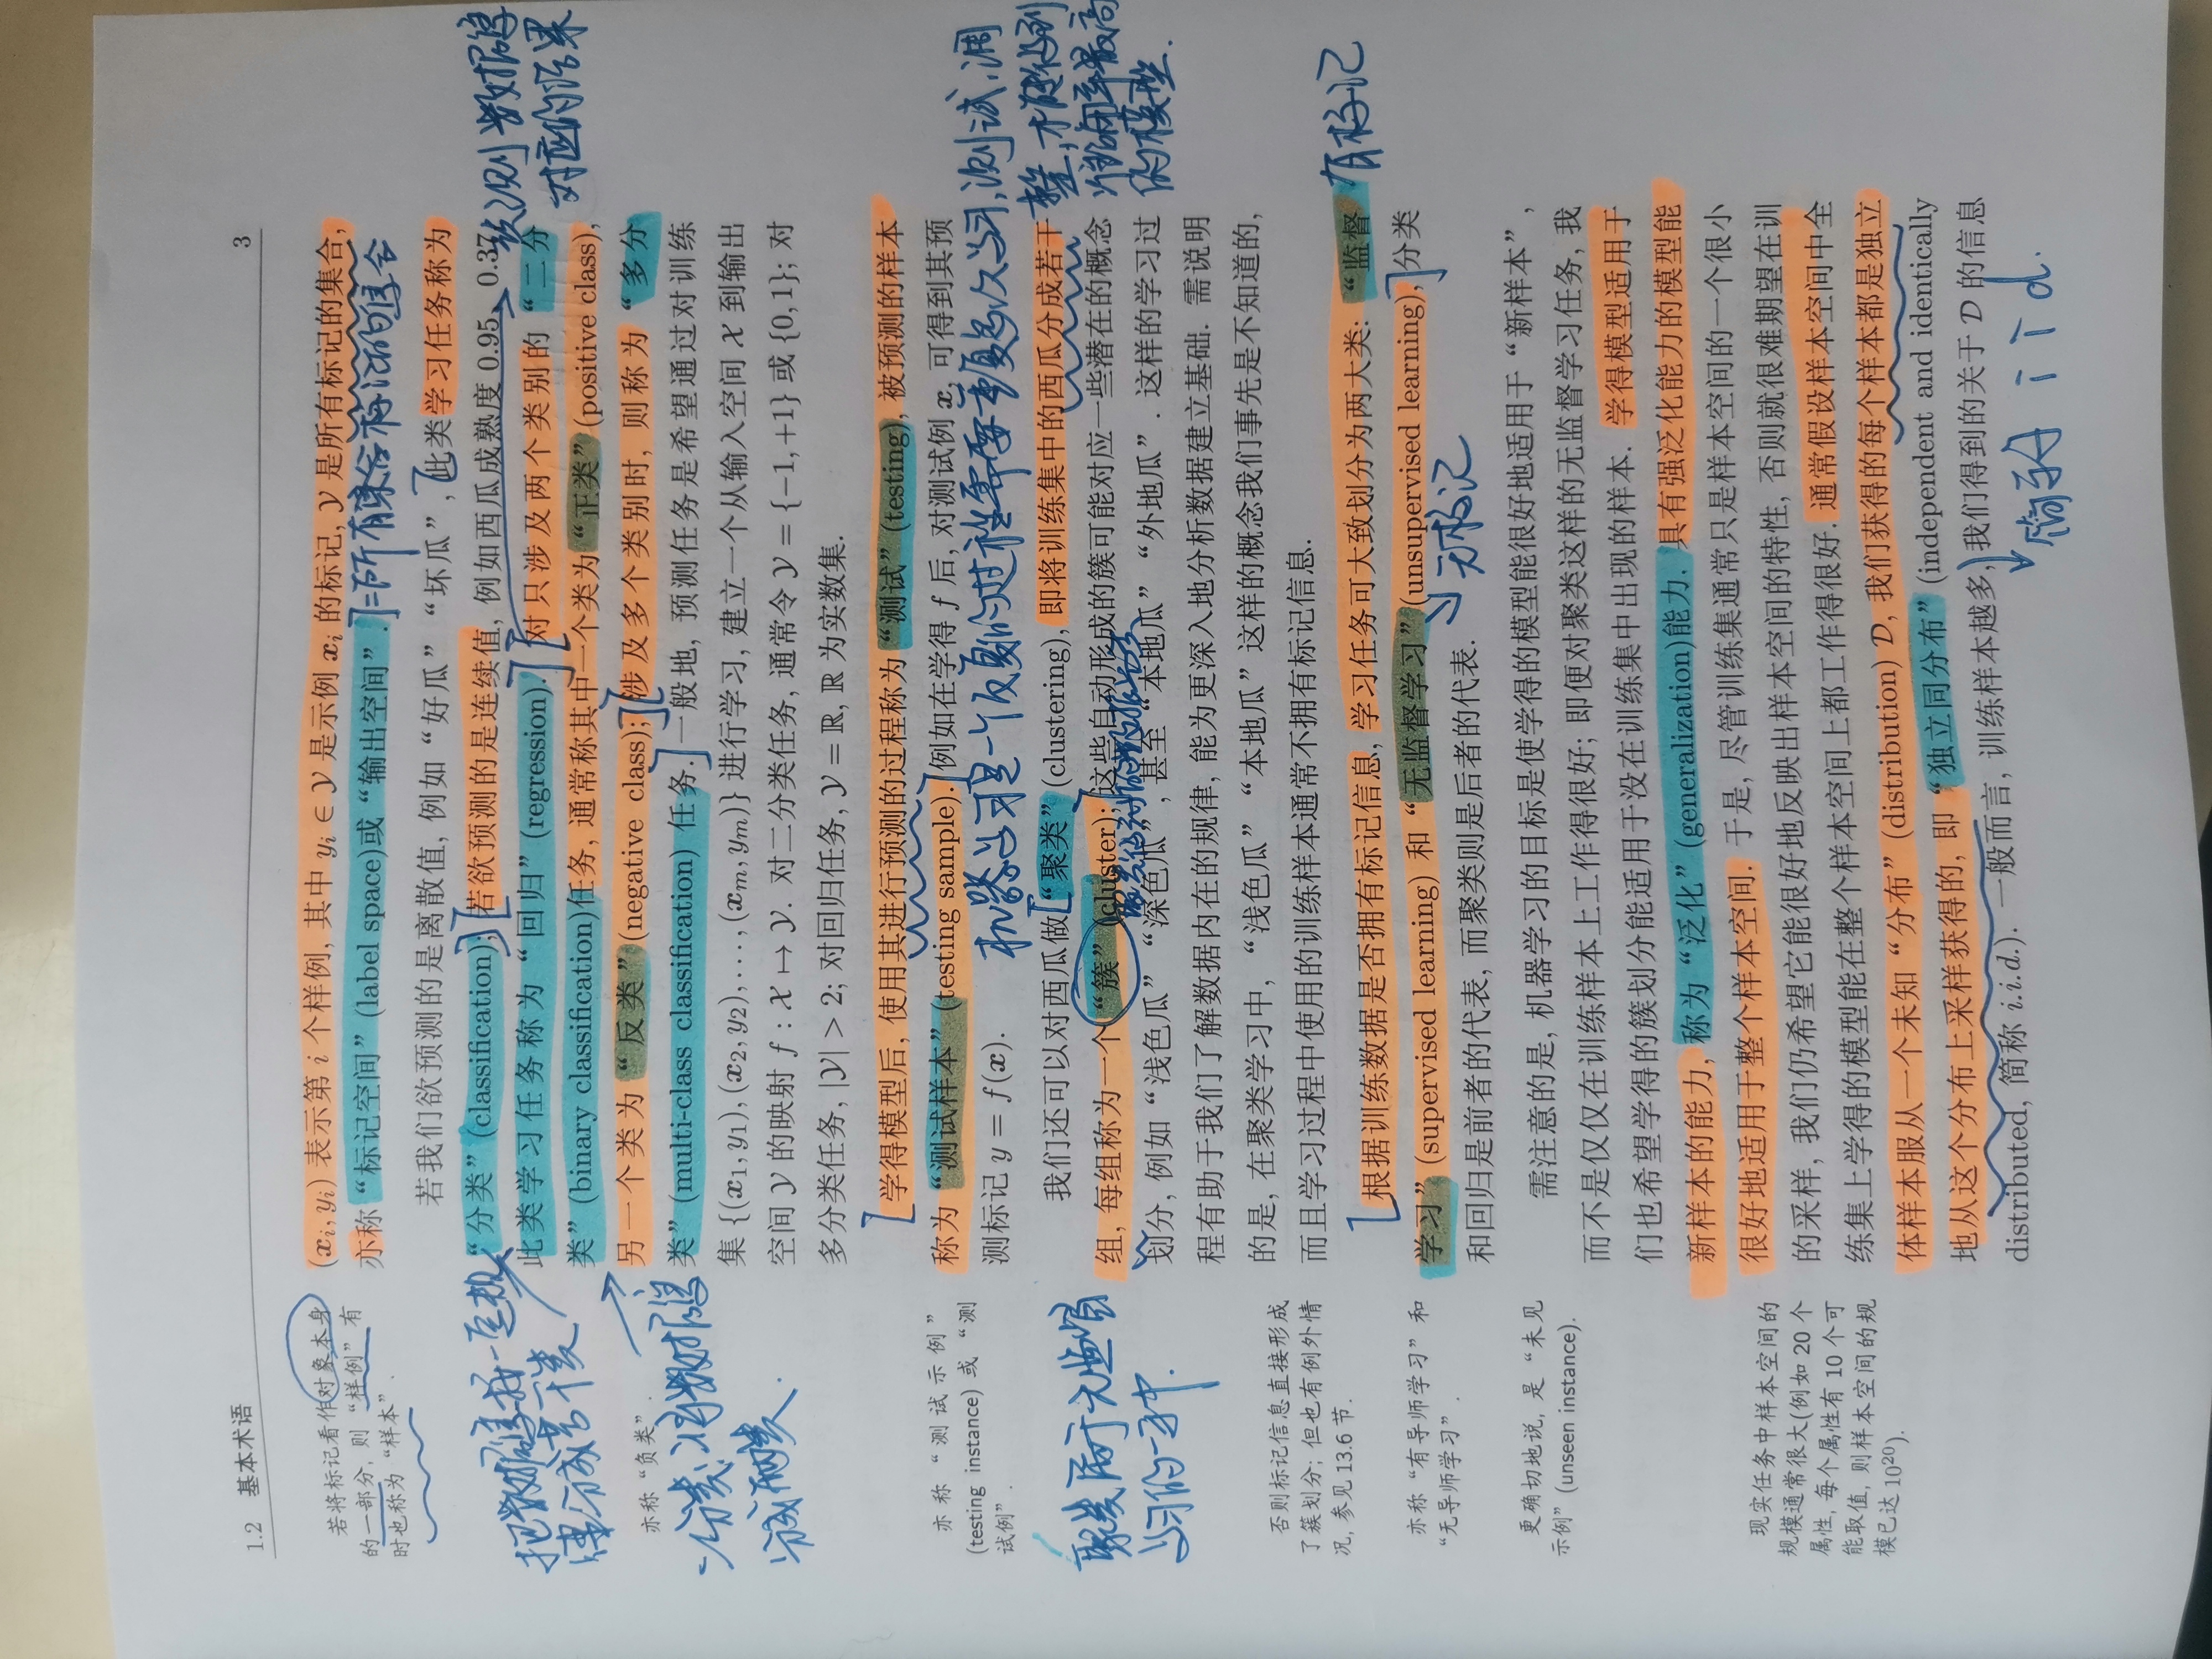 1.2 基本术语 3
(xᵢ, yᵢ) 表示第 i 个样例, 其中 yᵢ ∈ 𝒴 是示例 xᵢ 的标记, 𝒴 是所有标记的集合,
亦称 “标记空间” (label space)或 “输出空间”.
=所有标记的集合
若将标记看作对象本身
的一部分, 则 “样例” 有
时也称为 “样本”.
若我们欲预测的是离散值, 例如 “好瓜” “坏瓜”, 此类学习任务称为
“分类” (classification); 若欲预测的是连续值, 例如西瓜成熟度 0.95、0.37,
此类学习任务称为 “回归” (regression). 对只涉及两个类别的 “二分
类” (binary classification)任务, 通常称其中一个类为 “正类” (positive class),
另一个类为 “反类” (negative class); 涉及多个类别时, 则称为 “多分
类” (multi-class classification) 任务. 一般地, 预测任务是希望通过对训练
集 {(x₁, y₁), (x₂, y₂), . . . , (xₘ, yₘ)} 进行学习, 建立一个从输入空间 𝒳 到输出
空间 𝒴 的映射 f : 𝒳 ↦ 𝒴. 对二分类任务, 通常令 𝒴 = {−1, +1} 或 {0, 1}; 对
多分类任务, |𝒴| > 2; 对回归任务, 𝒴 = ℝ, ℝ 为实数集.
预测数据
对应的结果
亦称 “负类”.
二分类:将数据
分成两类.
学得模型后, 使用其进行预测的过程称为 “测试” (testing), 被预测的样本
称为 “测试样本” (testing sample). 例如在学得 f 后, 对测试例 x, 可得到其预
测标记 y = f(x).
亦称 “测试示例”
(testing instance) 或 “测
试例”.
机器学习是一个反复的过程需要多次学习,测试,调
整,才能得到
准确率最高
的模型.
我们还可以对西瓜做 “聚类” (clustering), 即将训练集中的西瓜分成若干
组, 每组称为一个 “簇” (cluster); 这些自动形成的簇可能对应一些潜在的概念
划分, 例如 “浅色瓜” “深色瓜”, 甚至 “本地瓜” “外地瓜”. 这样的学习过
程有助于我们了解数据内在的规律, 能为更深入地分析数据建立基础. 需说明
的是, 在聚类学习中, “浅色瓜” “本地瓜” 这样的概念我们事先是不知道的,
而且学习过程中使用的训练样本通常不拥有标记信息.
聚类属于无监督
学习的一种.
否则标记信息直接形成
了簇划分; 但也有例外情
况, 参见 13.6 节.
根据训练数据是否拥有标记信息, 学习任务可大致划分为两大类: “监督
学习” (supervised learning) 和 “无监督学习” (unsupervised learning), 分类
和回归是前者的代表, 而聚类则是后者的代表.
有标记
无标记
亦称 “有导师学习” 和
“无导师学习”.
需注意的是, 机器学习的目标是使学得的模型能很好地适用于 “新样本”,
而不是仅仅在训练样本上工作得很好; 即便对聚类这样的无监督学习任务, 我
们也希望学得的簇划分能适用于没在训练集中出现的样本. 学得模型适用于
新样本的能力, 称为 “泛化” (generalization)能力. 具有强泛化能力的模型能
很好地适用于整个样本空间. 于是, 尽管训练集通常只是样本空间的一个很小
的采样, 我们仍希望它能很好地反映出样本空间的特性, 否则就很难期望在训
练集上学得的模型能在整个样本空间上都工作得很好. 通常假设样本空间中全
体样本服从一个未知 “分布” (distribution) 𝒟, 我们获得的每个样本都是独立
地从这个分布上采样获得的, 即 “独立同分布” (independent and identically
distributed, 简称 i.i.d.). 一般而言, 训练样本越多, 我们得到的关于 𝒟 的信息
更确切地说, 是 “未见
示例” (unseen instance).
现实任务中样本空间的
规模通常很大(例如 20 个
属性, 每个属性有 10 个可
能取值, 则样本空间的规
模已达 10²⁰).
简称 i i d.